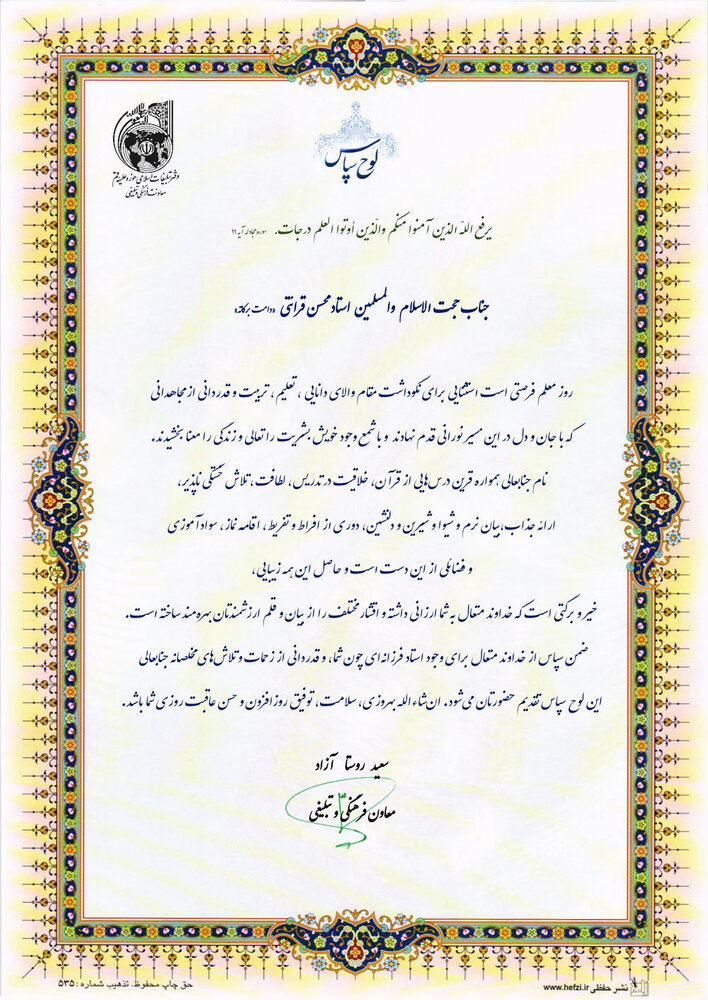 لوح سپاس
دفتر تبلیغات اسلامی حوزه علمیه قم
معاونت فرهنگی تبلیغی
یرفع اللّه الذین آمنوا منکم والّذین أوتوا العلم درجات. سوره مجادله آیه ۱۱
جناب حجت الاسلام والمسلمین استاد محسن قرائتی «دامت برکاته»
روز معلم فرصتی است استثنایی برای نکوداشت مقام والای دانایی ، تعلیم ، تربیت و قدردانی از مجاهدانی
که با جان و دل در این مسیر نورانی قدم نهادند و با شمع وجود خویش بشریت را تعالی و زندگی را معنا بخشیدند.
نام جنابعالی همواره قرین درس‌هایی از قرآن، خلاقیت در تدریس، لطافت، تلاش خستگی ناپذیر،
ارائه جذاب، بیان نرم و شیوا و شیرین و دلنشین، دوری از افراط و تفریط ، اقامه نماز ، سوادآموزی
و فضائلی از این دست است و حاصل این همه زیبایی،
خیر و برکتی است که خداوند متعال به شما ارزانی داشته و اقشار مختلف را از بیان و قلم ارزشمندتان بهره مند ساخته است.
ضمن سپاس از خداوند متعال برای وجود استاد فرزانه‌ای چون شما، و قدردانی از زحمات و تلاش‌های مخلصانه جنابعالی
این لوح سپاس تقدیم حضورتان می‌شود. ان‌شاءالله بهروزی، سلامت، توفیق روزافزون و حسن عاقبت روزی شما باشد.
سعید روستا آزاد
معاون فرهنگی و تبلیغی
نشر حفظی www.hefzi.ir
حق چاپ محفوظ. تذهیب شماره : ۵۳۵